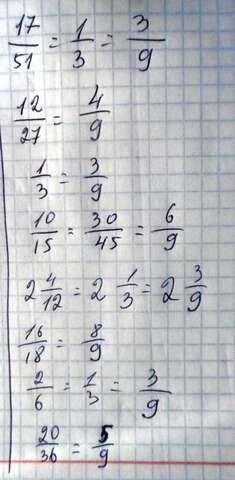 17/51 = 1/3 = 3/9
12/27 = 4/9
1/3 = 3/9
10/15 = 30/45 = 6/9
2 4/12 = 2 1/3 = 2 3/9
16/18 = 8/9
2/6 = 1/3 = 3/9
20/36 = 5/9